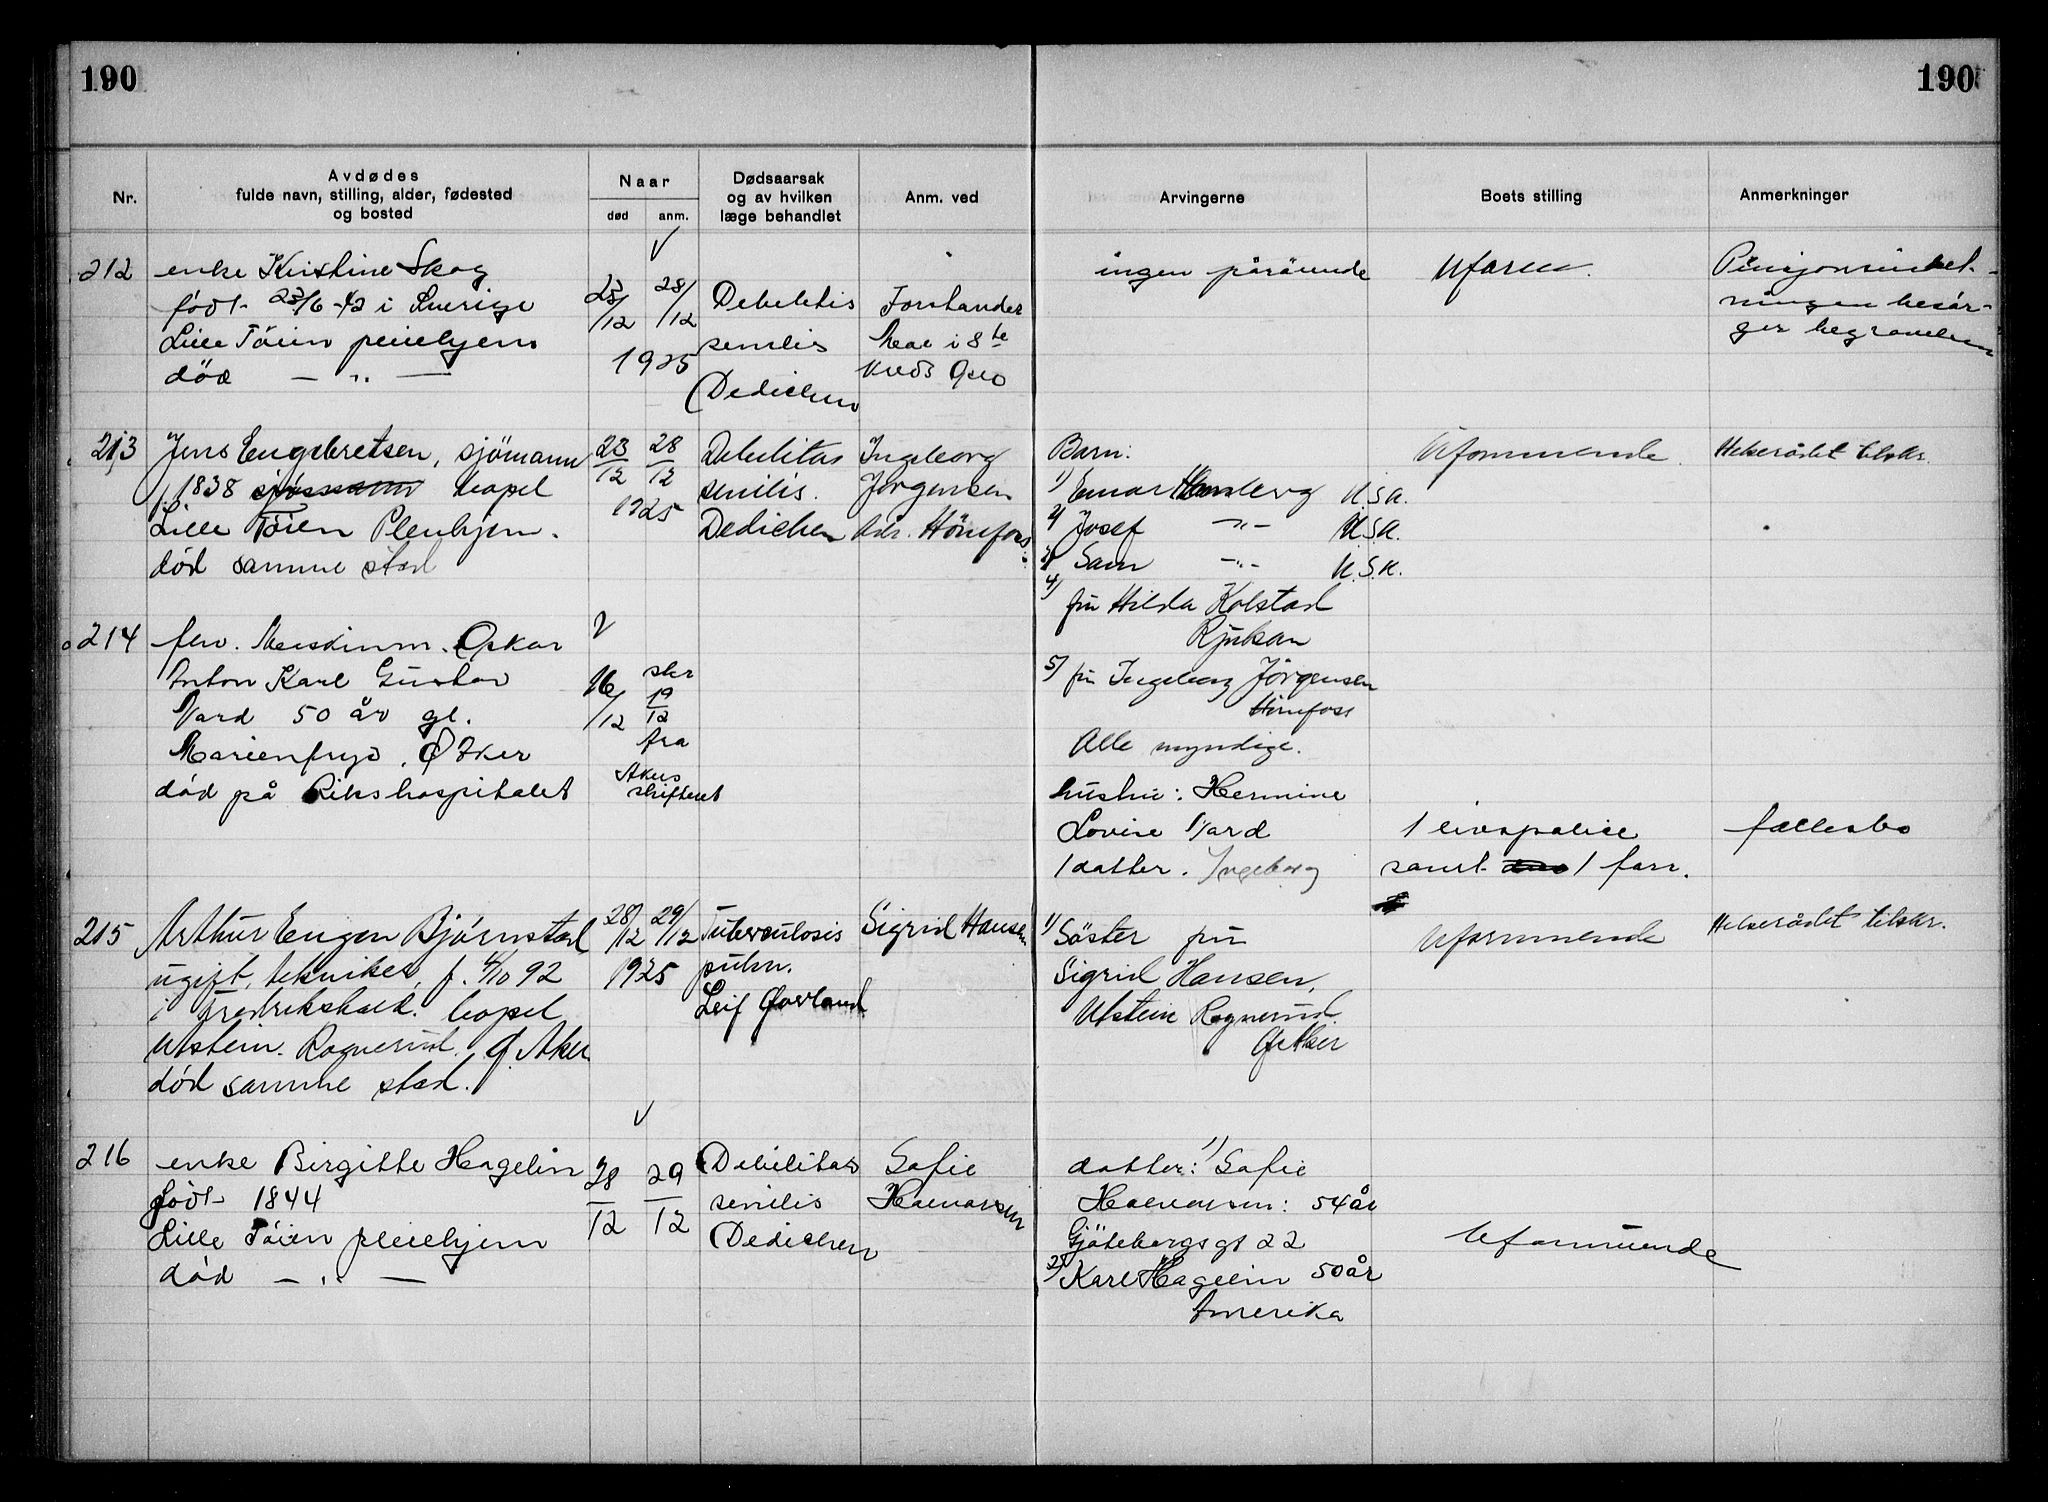 190
190
Nr.
Avdødes
fulde navn, stilling, alder, fødested
og bosted
Naar
død
anm.
Dødsaarsak
og av hvilken
læge behandlet
Anm. ved
Arvingerne
Boets stilling
Anmerkninger
212
enke Kristine Skog
født 23/6 42 i Sverige
Lille Töien pleiehjem
död — " —
23/12
28/12
1925
Debilitis
senilis
(Dedichen
Forstander
i 8de
kreds Oslo
ingen pårörende
Uform.
ningen besör-
ger begravelsen
213
Jens Engebretsen, sjömann
f. 1838 sjømann bopel
Lille Töien Pleiehjem.
död samme sted
23/12
28/12
1925
Debilitas
senilis.
Dedichen
Ingeborg
Jørgensen
adr. Hönefoss
Barn:
1) Einar Hamberg U.S.A.
2) Josef —"— U.S.A.
3) Sam —"— U.S.A.
4) fru Hilda Kolstad
Rjukan
5) fru Ingeborg Jörgensen
Hönefoss
Alle myndige.
Uformuende.
Helserådet tilskr.
214
fhv. Maskinm. Oskar
Anton Karl Gustav
Vard 50 år gl.
Marienfryd, Ø Aker
död på Rikshospitalet
16/12
skr
19/12
fra
Akers
skifteret
hustru: Hermine
Lovise Vard
1 datter. Ingeborg
1 livspolice
samt 1 forr.
fællesbo
215
Arthur Eugen Bjørnstad
ugift, tekniker, f. 4/10 92
i Fredrikshald. bopel
Utstein. Rognerud. Ø. Aker
död samme sted.
28/12
29/12
1925
Tuberculosis
pulm.
Leif Øverland
Sigrid Hansen
1) Söster fru
Sigrid Hansen,
Utstein Rognerud.
Ø Aker
Uformuende
Helserådet tilskr.
216
enke Birgitte Hagelin
født 1844
Lille Töien pleiehjem
död — " —
28/12
29/12
Debilitas
senilis
(Dedichen
Sofie
Halvorsen
datter: 1) Sofie
Halvorsen: 54 år
Gjöteborgsgt 22
2) Karl Hagelin 50 år
Amerika
Uformuende